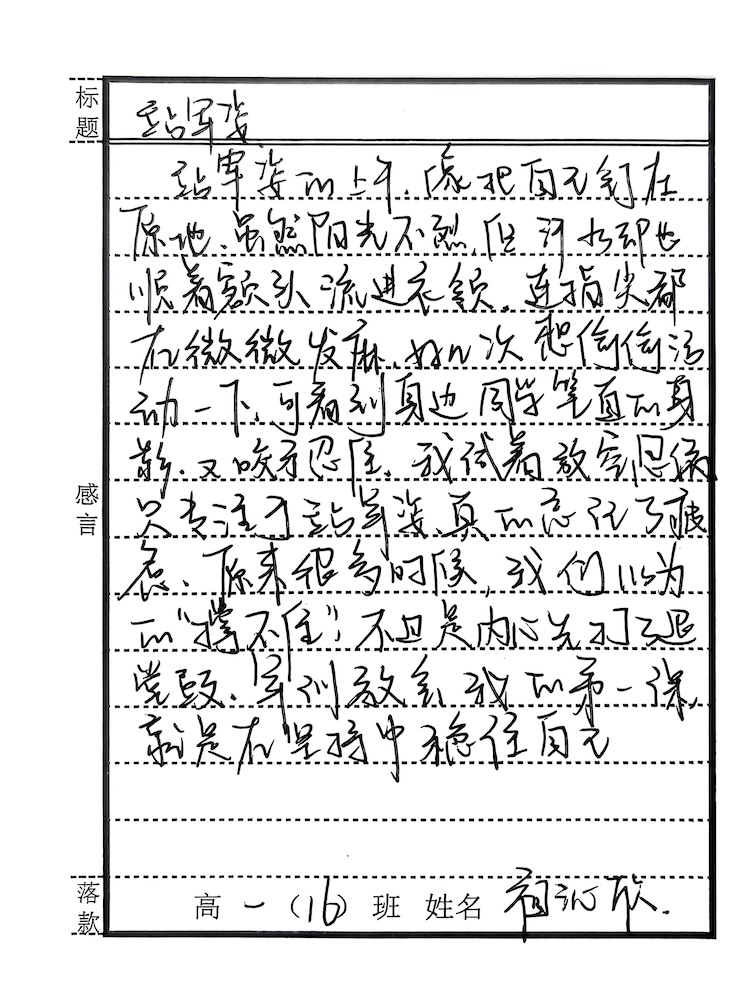 标题
站军姿
站军姿的上午,像把自己钉在
原地,虽然阳光不烈,但汗水却也
顺着额头流进衣领,连指尖都
在微微发麻,好几次想偷偷活
动一下,可看到身边同学笔直的身
影,又咬牙忍住,我试着放空思绪
只专注于站军姿,真的忘记了疲
惫,原来很多时候,我们以为
的“撑不住”,不过是内心先打了退
堂鼓,军训教会我的第一课,
就是在坚持中稳住自己
感言
落款
高一(16)班 姓名